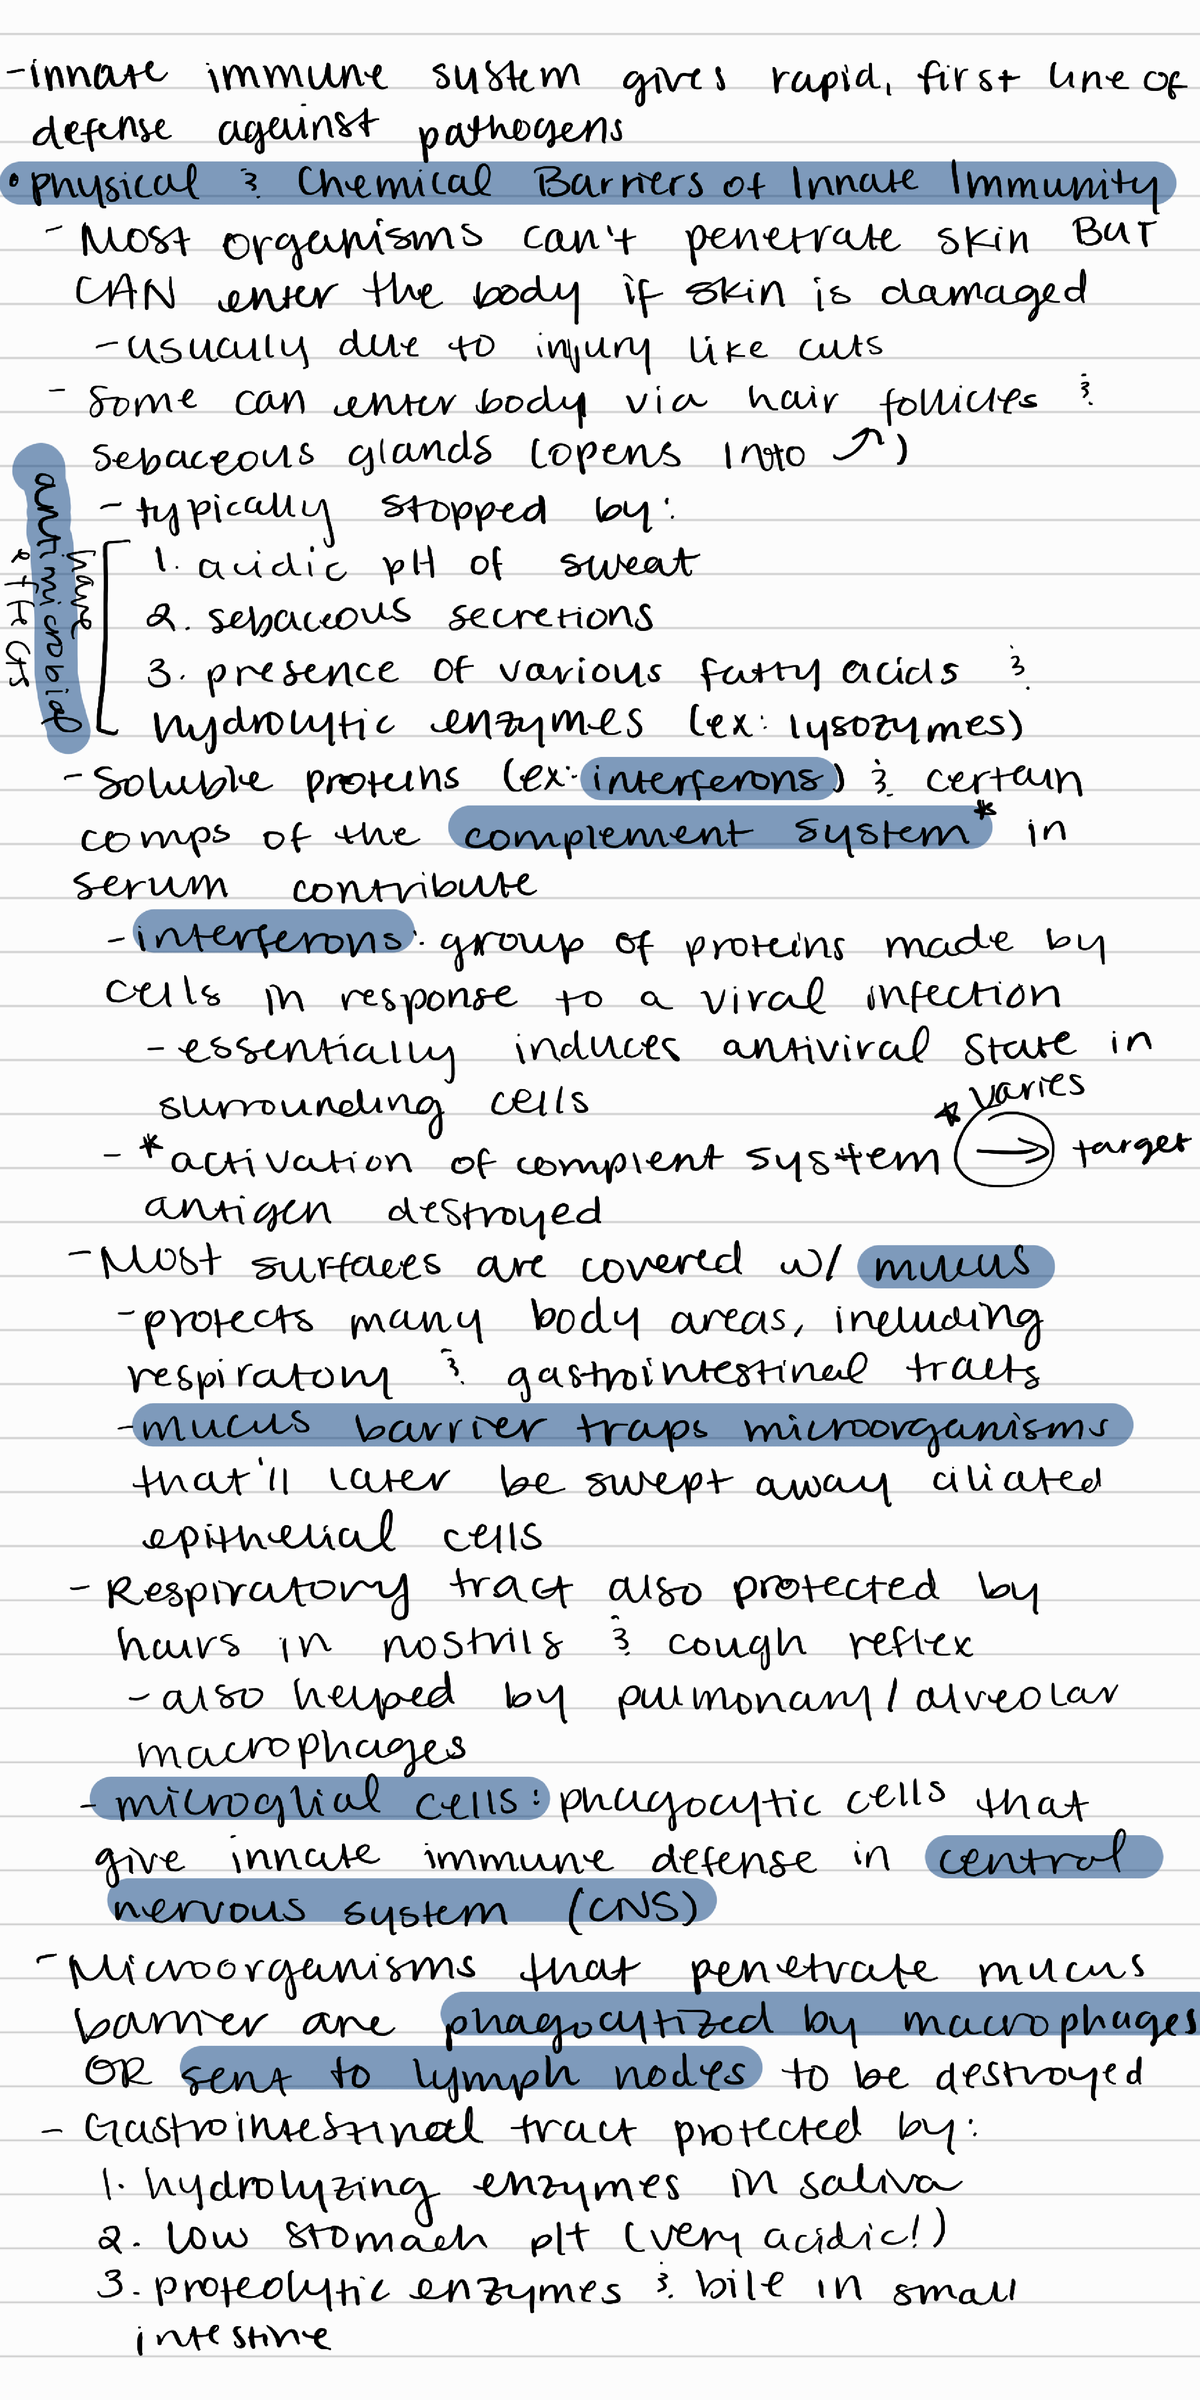 -innate immune system gives rapid, first line of
defense against pathogens
•Physical & Chemical Barriers of Innate Immunity
- Most organisms can't penetrate skin BUT
CAN enter the body if skin is damaged
-usually due to injury like cuts
- Some can enter body via hair follicles &
sebaceous glands (opens into ↗)
- typically stopped by:
have
antimicrobial
effects
1. acidic pH of sweat
2. sebaceous secretions
3. presence of various fatty acids &
hydrolytic enzymes (ex: lysozymes)
- Soluble proteins (ex: interferons) & certain
comps of the complement system* in
serum contribute
- interferons: group of proteins made by
cells in response to a viral infection
- essentially induces antiviral state in
surrounding cells
* varies
- *activation of complent system → target
antigen destroyed
- Most surfaces are covered w/ mucus
- protects many body areas, including
respiratory & gastrointestinal tracts
- mucus barrier traps microorganisms
that'll later be swept away ciliated
epithelial cells
- Respiratory tract also protected by
hairs in nostrils & cough reflex
- also helped by pulmonary/alveolar
macrophages
- microglial cells: phagocytic cells that
give innate immune defense in central
nervous system (CNS)
- Microorganisms that penetrate mucus
barrier are phagocytized by macrophages
OR sent to lymph nodes to be destroyed
- Gastrointestinal tract protected by:
1. hydrolyzing enzymes in saliva
2. low stomach pH (very acidic!)
3. proteolytic enzymes & bile in small
intestine